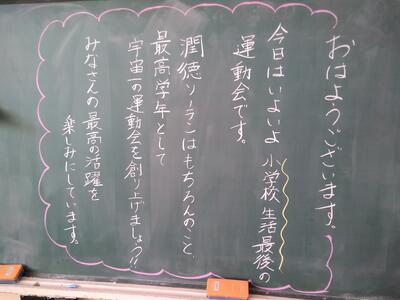 おはようございます。
今日はいよいよ 小学校生活最後の
運動会です。
潤徳ソーランはもちろんのこと、
最高学年として
宇宙一の運動会を創り上げましょう!!
みなさんの最高の活躍を
楽しみにしています。